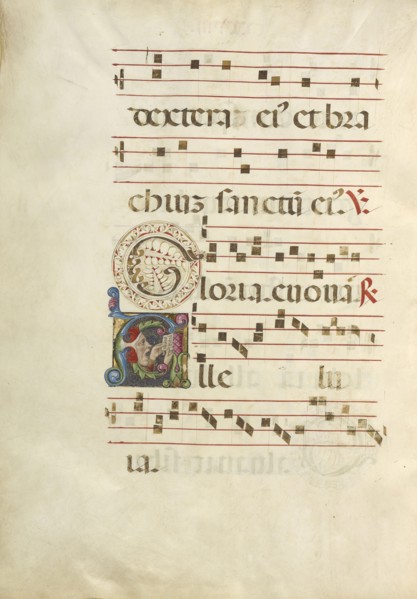 dextera eiꝰ et bra
chuiz sanctū eiꝰ. ℣:
Gloria. euouā ℟.
Alle lu
ia.